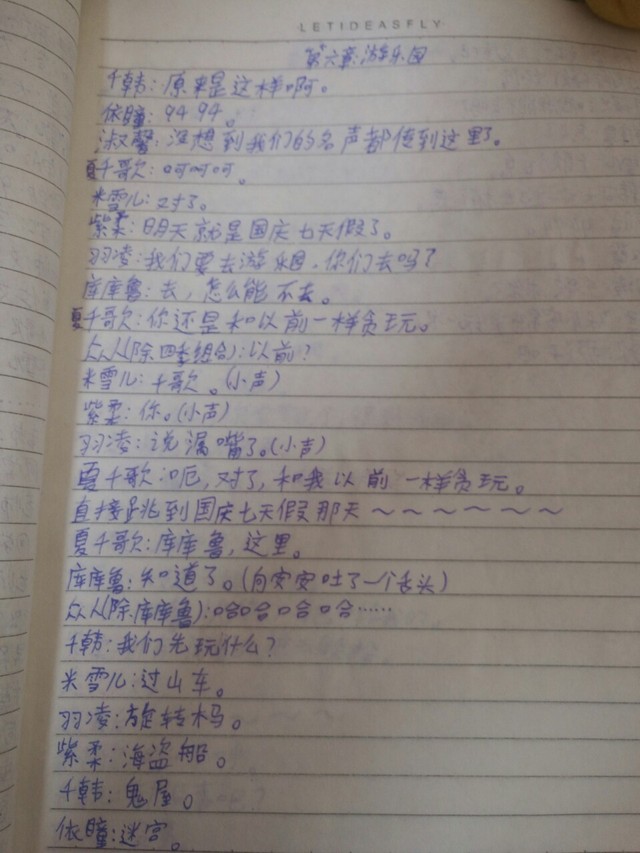 LETIDEASFLY
第六章:游乐园
千韩:原来是这样啊。
依瞳:9494。
淑馨:没想到我们的名声都传到这里了。
夏千歌:呵呵呵。
米雪儿:对了。
紫柔:明天就是国庆七天假了。
羽凌:我们要去游乐园,你们去吗?
库库鲁:去,怎么能不去。
夏千歌:你还是和以前一样贪玩。
众人(除四季组合):以前?
米雪儿:千歌。(小声)
紫柔:你。(小声)
羽凌:说漏嘴了。(小声)
夏千歌:呃,对了,和我以前一样贪玩。
直接跳到国庆七天假那天~~~~~~~
夏千歌:库库鲁,这里。
库库鲁:知道了。(向安安吐了一个舌头)
众人(除库库鲁):哈哈哈哈……
千韩:我们先玩什么?
米雪儿:过山车。
羽凌:旋转木马。
紫柔:海盗船。
千韩:鬼屋。
依瞳:迷宫。